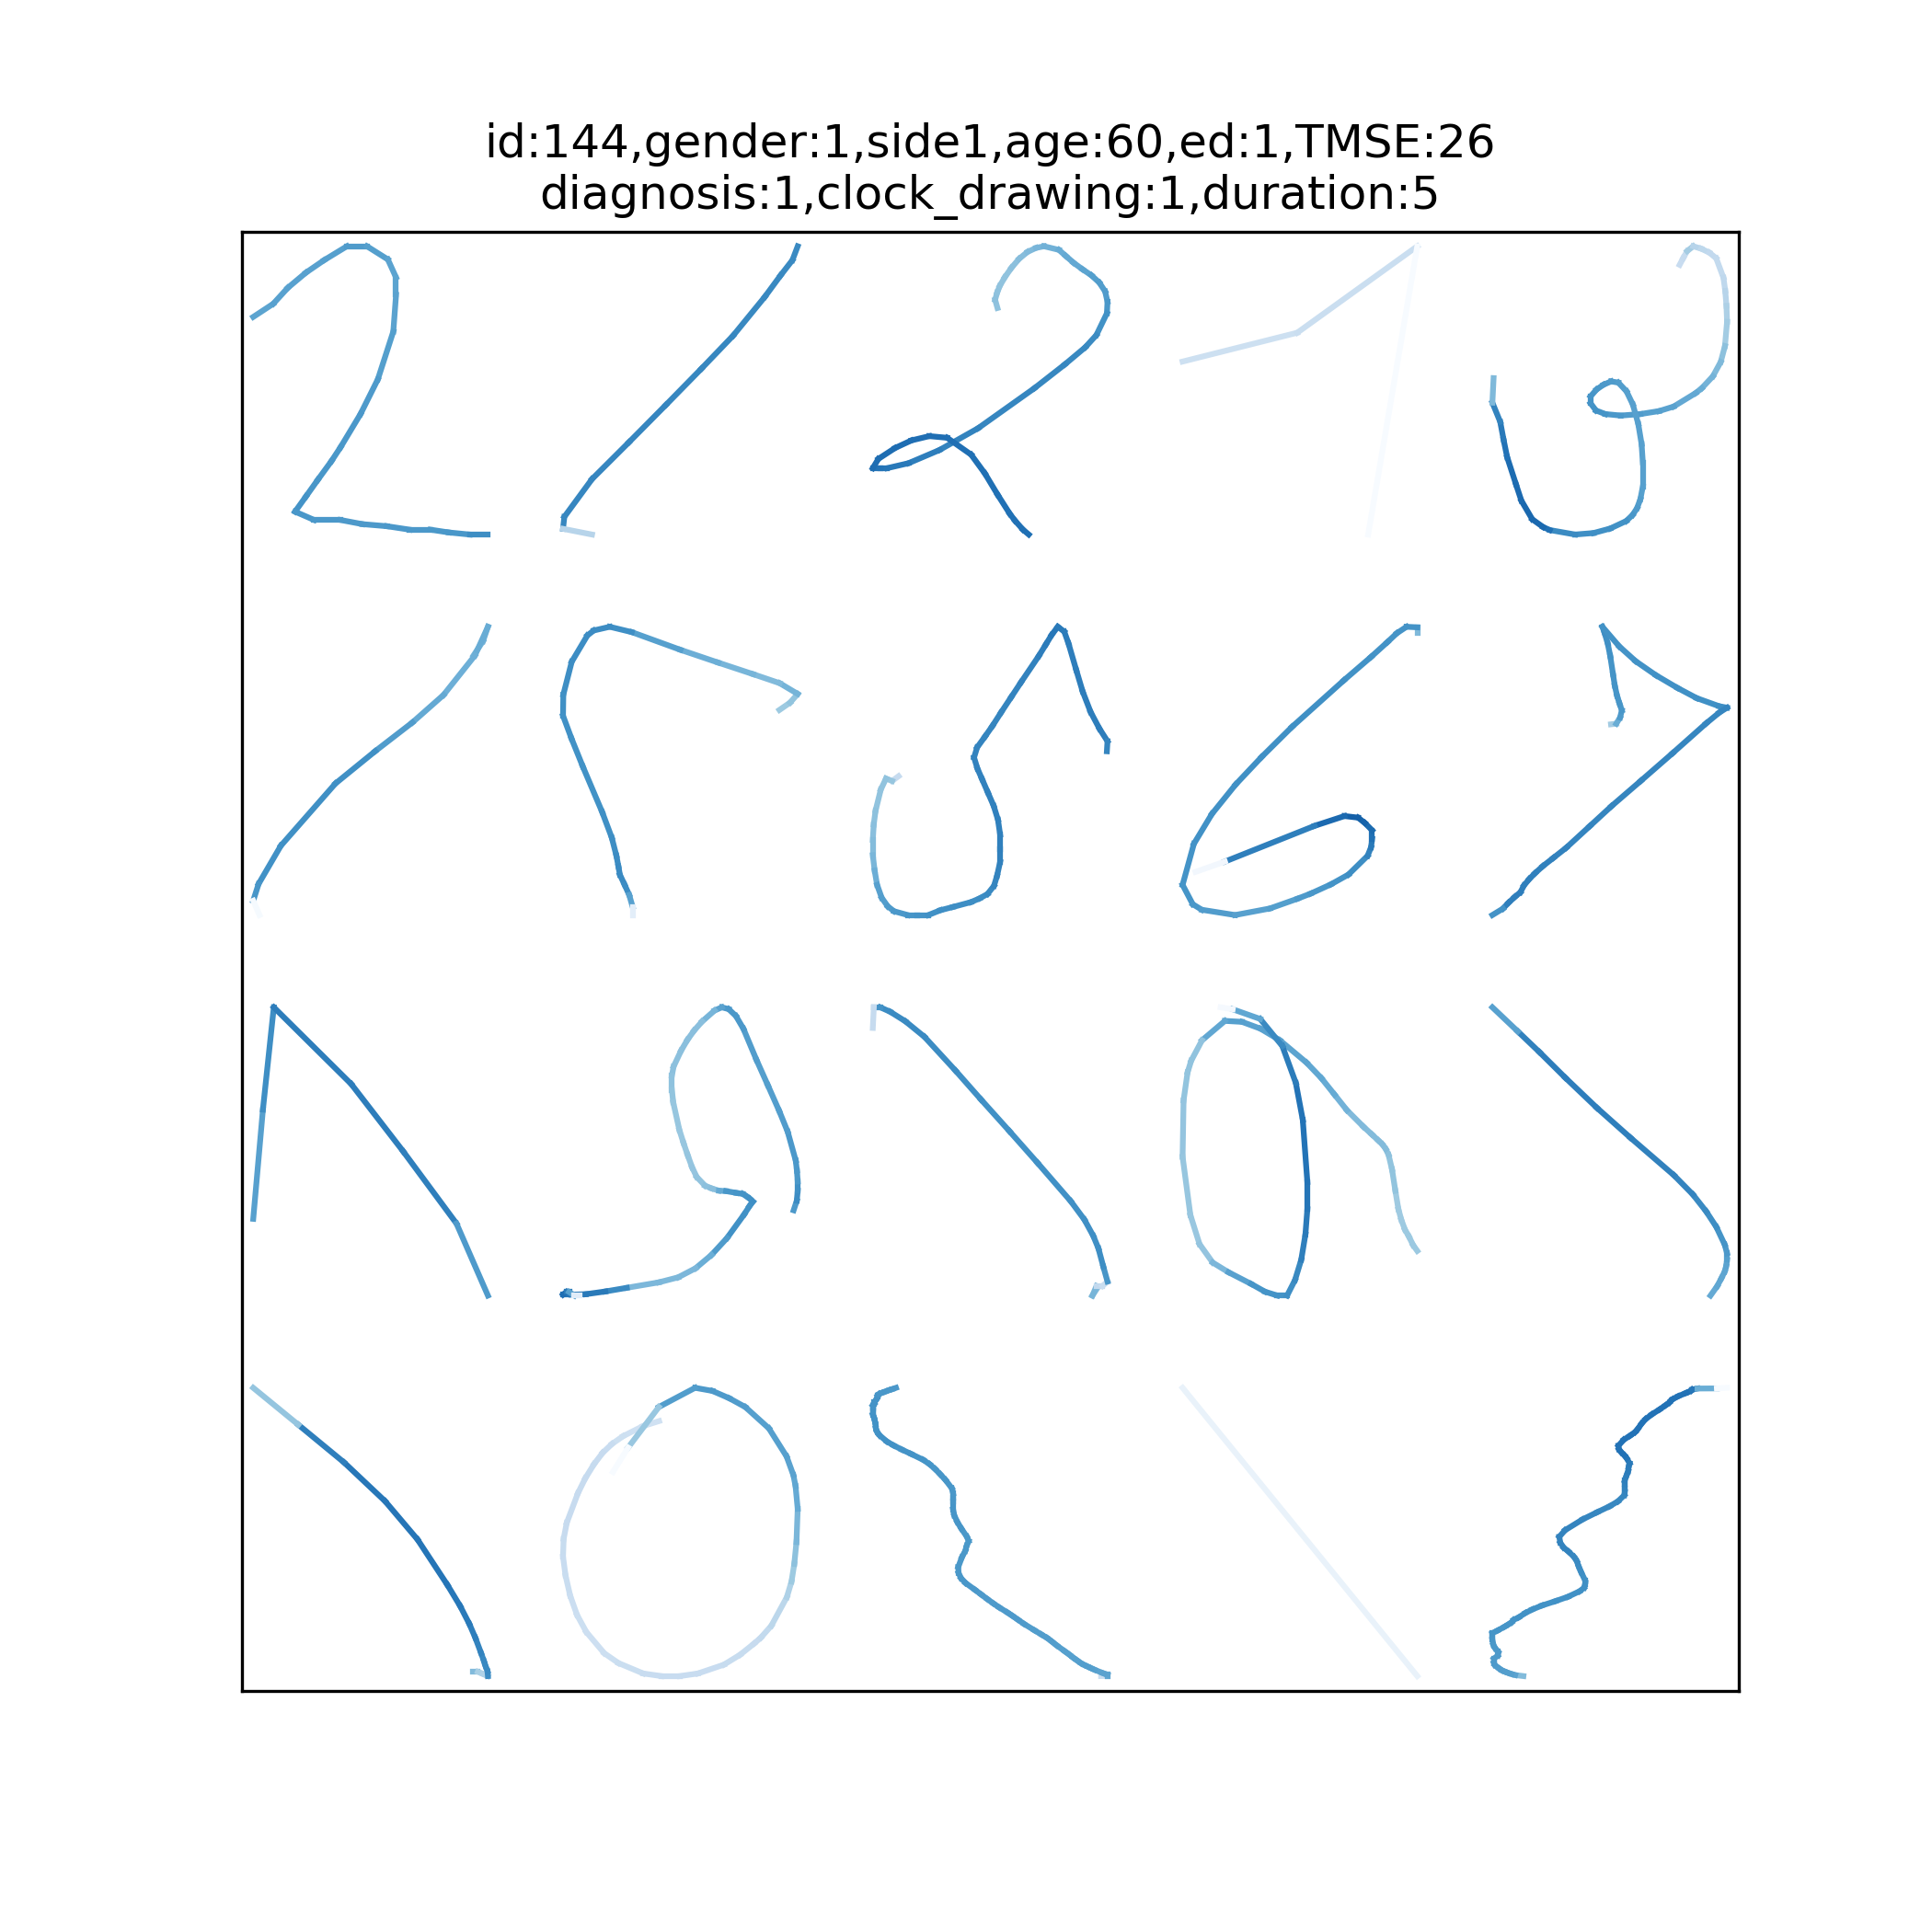 id:144,gender:1,side1,age:60,ed:1,TMSE:26
diagnosis:1,clock_drawing:1,duration:5